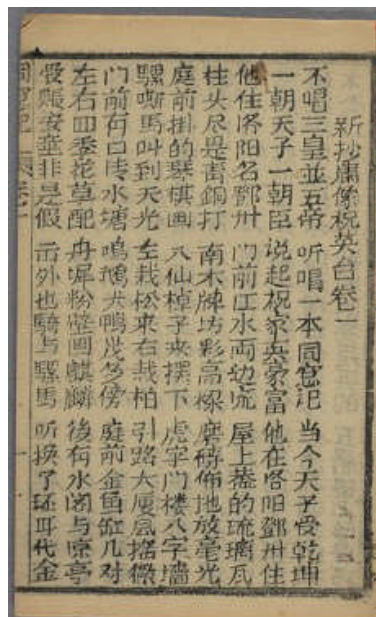 新抄肅像祝英台卷一
不唱三皇並五帝 听唱一本同窓记 当今天子受乾坤
一朝天子一朝臣 说起祝家真豪富 他在洛阳鄧州住
他住洛阳名鄧州 门前江水両边流 屋上蓋的琉璃瓦
柱头尽是青銅打 南木牌坊彩高樑 磨磚佈地放毫光
庭前掛的琴棋画 八仙棹子夾摆下 虎字门楼八字墻
騾嘶馬叫到天光 左栽松来右栽柏 引路大厦
门前有口水塘 鳴鵝犬鴨傍 庭前金鱼缸几对
左右四季花草配 丹墀粉壁画麒麟 後有水阁与凉亭
非是假 出外也騎与騾馬 听换了环耳代金